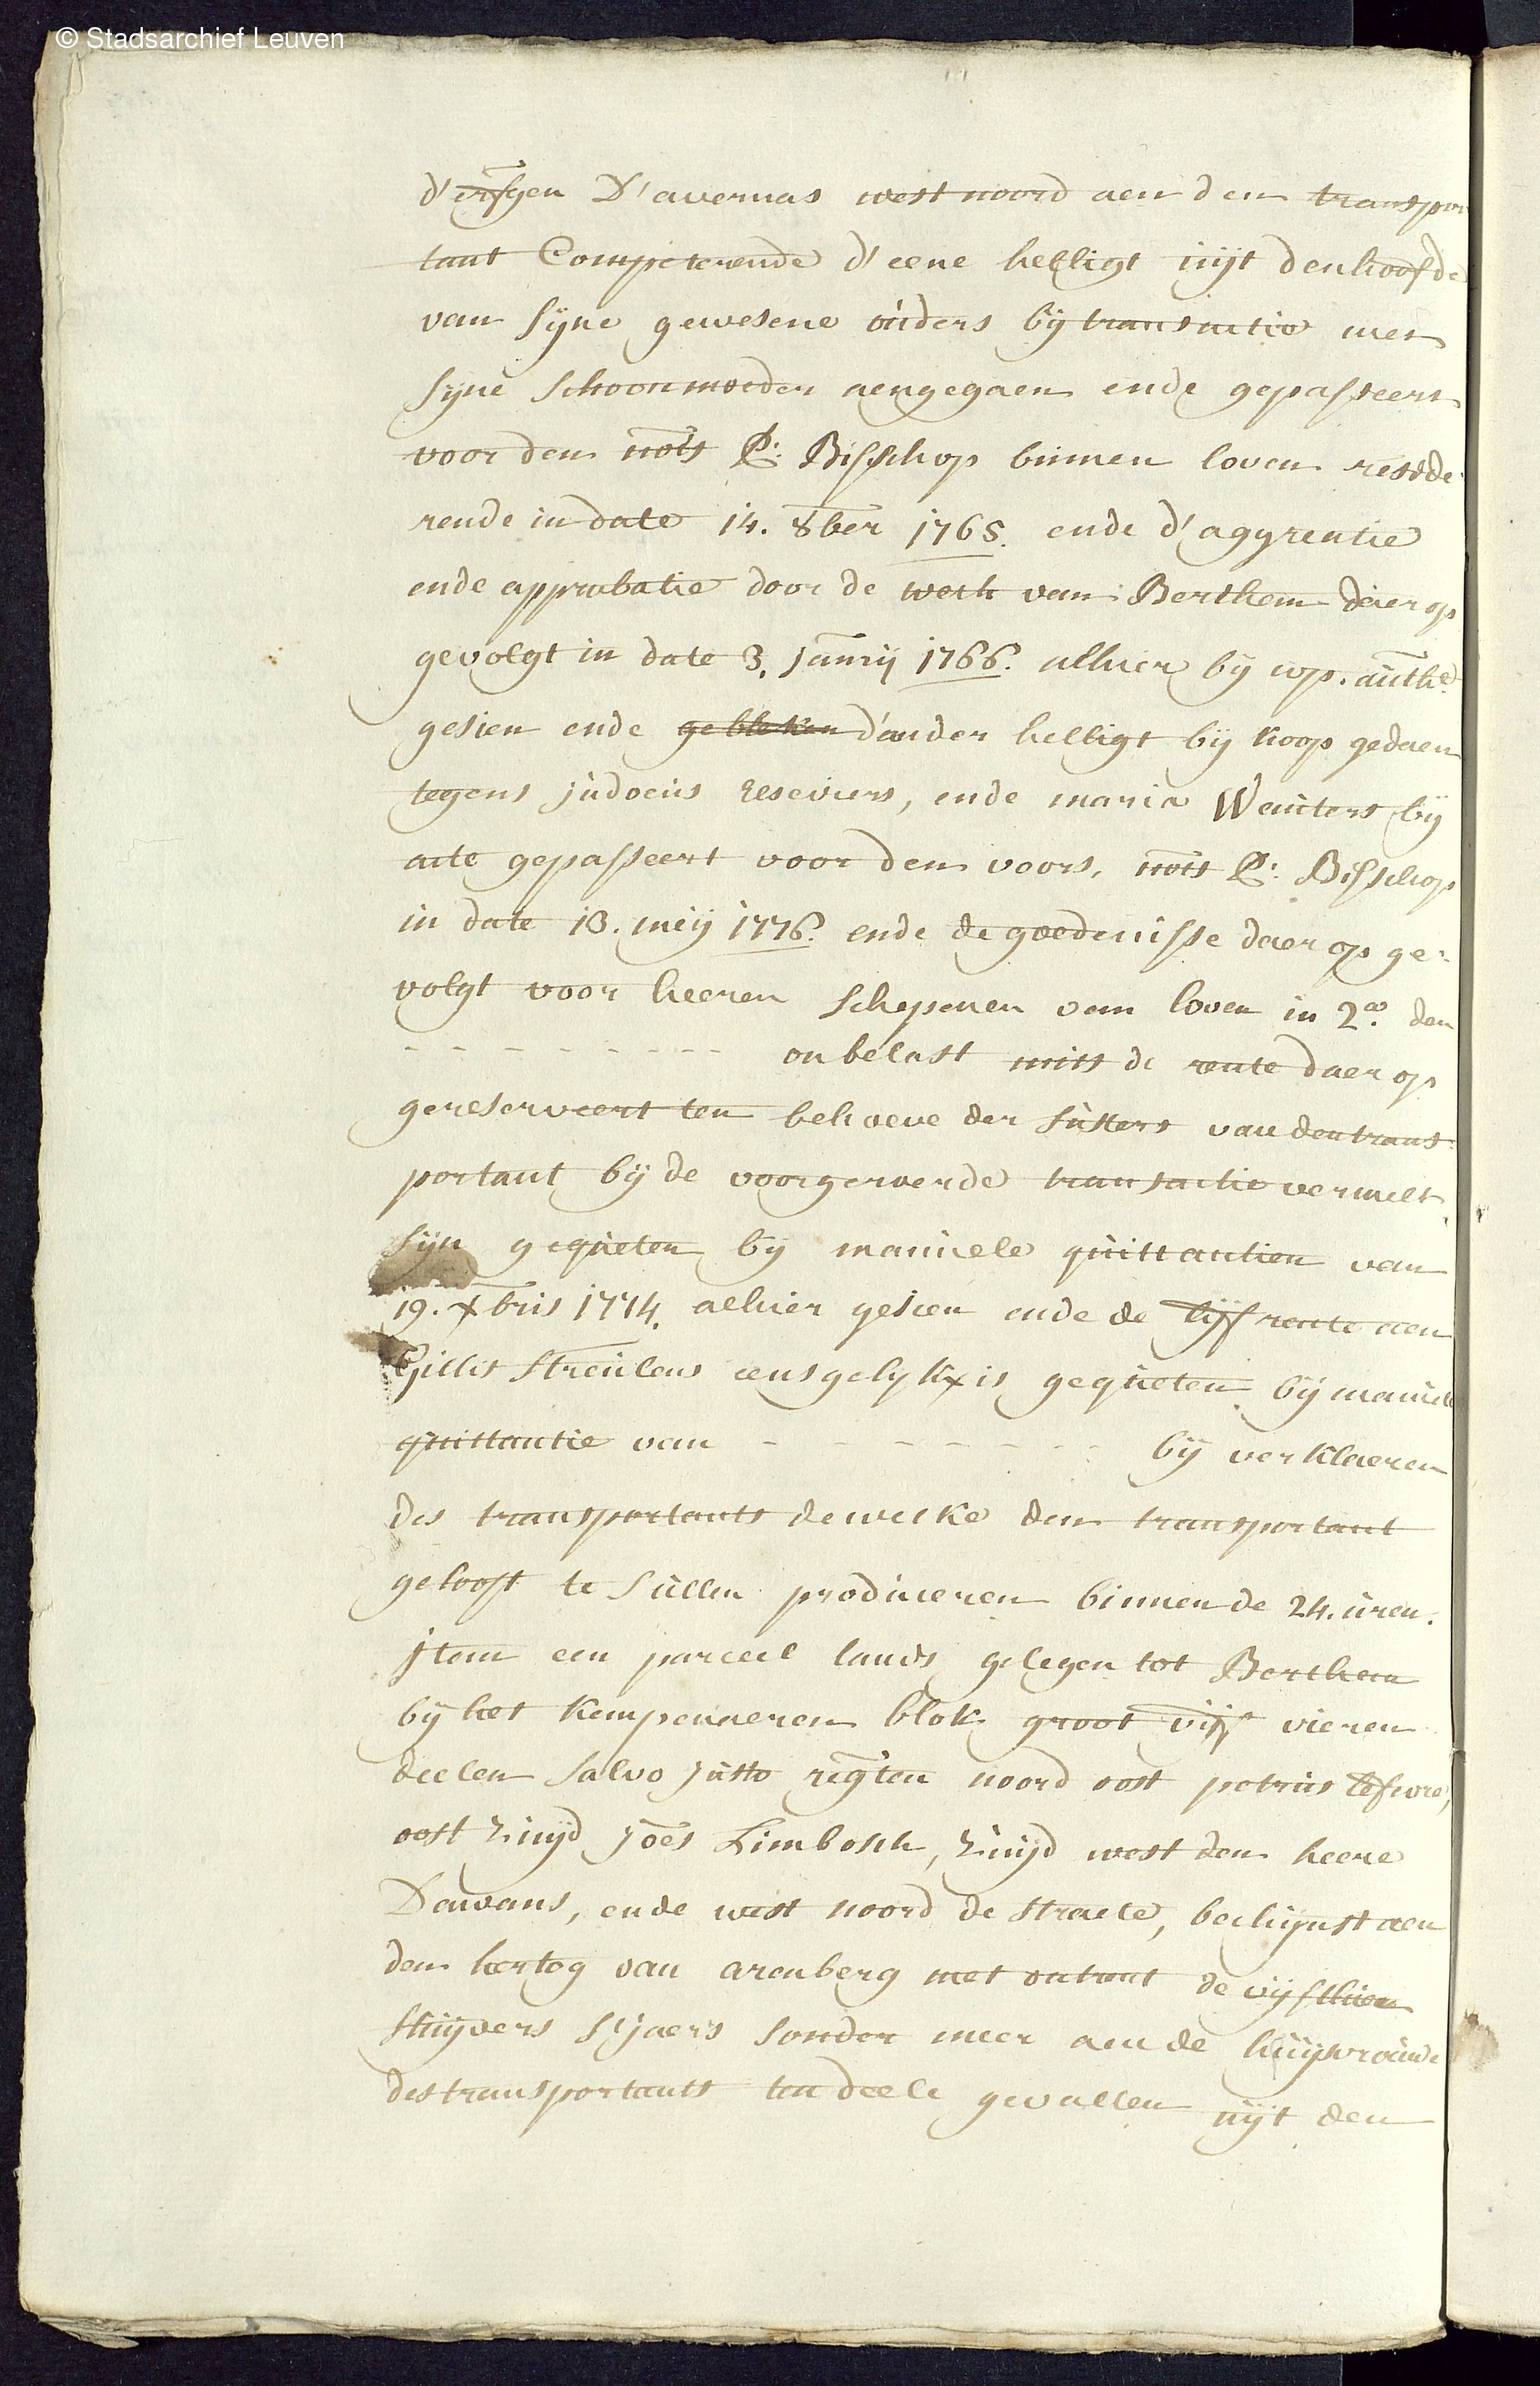 © Stadsarchief Leuven
d'erfgen D'avernas west noord aen den transpor
tant Competerende d'eene helligt uijt den hoofde
van sijne gewesene ouders bij transactie met
sijne schoonmoeder aengegaen ende gepasseert
voor den nots P: Bisschop binnen loven reside
rende in date 14. 8ber 1765. ende d'aggreatie
ende approbatie door de weth van Berthem daer op
gevolgt in date 3. janrij 1766. alhier bij cop. auth:
gesien ende gebleken d'ander helligt bij koop gedaen
tegens judocus reseviers, ende maria Wauters bij
acte gepasseert voor den voors. nots P: Bisschop
in date 13. meij 1776. ende de goedenisse daer op ge:
volgt voor heeren schepenen van loven in 2a. den
- - - - - - - - - onbelast mits de rente daer op
gereserveert ten behoeve der susters van den trans:
portant bij de voorgeroerde transactie vermelt
sijn gequeten bij manuele quittantien van
19. xbris 1774. alhier gesien ende de lijfrente aen
Gillis Streulens eensgelijkx is gequeten bij manuele
quittantie van - - - - - - - - bij verklaeren
des transportants dewelke den transportant
gelooft te sullen produceren binnen de 24. uren.
jtem een parceel lants gelegen tot Berthem
bij het kempeneren blok groot vijf vieren
deelen salvo justo regten noord oost petrus lefevre,
oost zuijd joes Limbosch, zuijd west den heere
Dewans, ende west noord de straete, bechijnst aen
den hertog van arenberg met ontrent de vijfthien
stuijvers s'jaers sonder meer aen de huijsvrouwe
des transportants ten deele gevallen uijt den